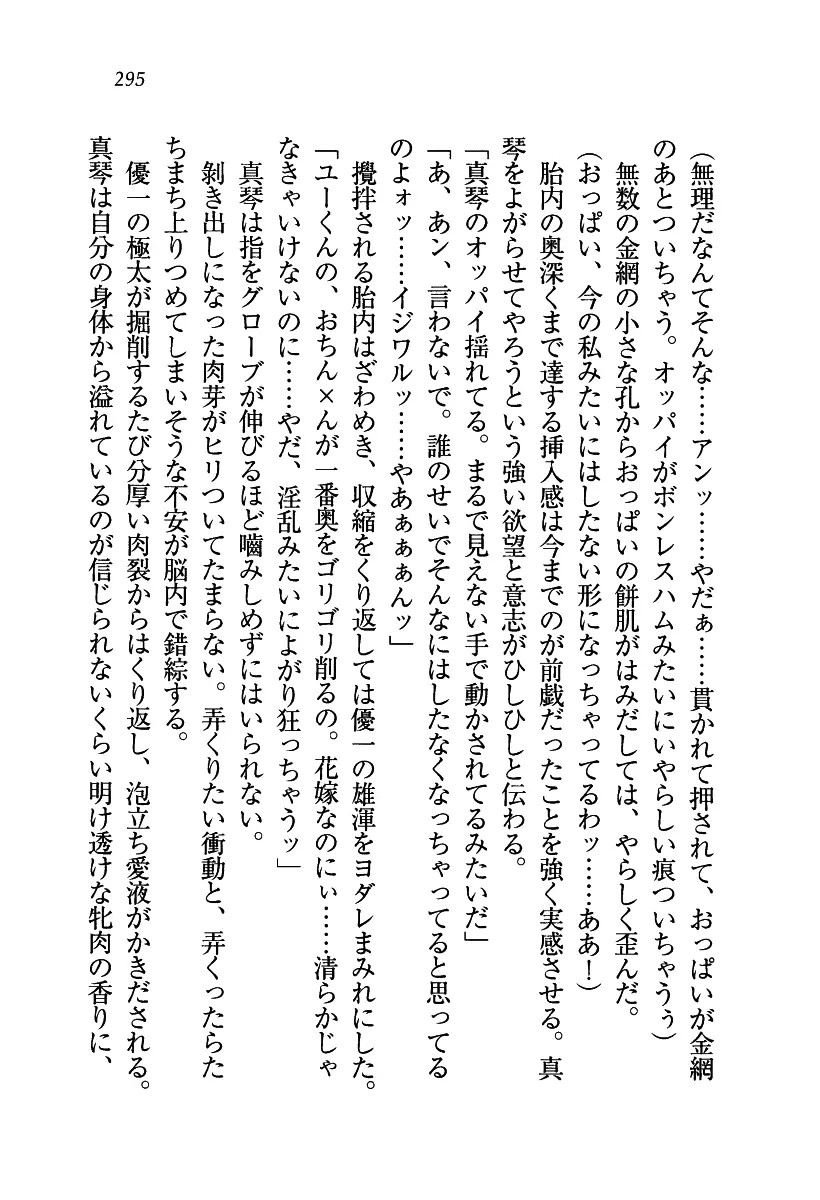 295
（無理だなんてそんな……アンッ……やだぁ……貫かれて押されて、おっぱいが金網
のあとついちゃう。オッパイがボンレスハムみたいにいやらしい痕ついちゃうぅ）
無数の金網の小さな孔からおっぱいの餅肌がはみだしては、やらしく歪んだ。
（おっぱい、今の私みたいにはしたない形になっちゃってるわッ……ああ！）
胎内の奥深くまで達する挿入感は今までのが前戯だったことを強く実感させる。真
琴をよがらせてやろうという強い欲望と意志がひしひしと伝わる。
「真琴のオッパイ揺れてる。まるで見えない手で動かされてるみたいだ」
「あ、あン、言わないで。誰のせいでそんなにはしたなくなっちゃってると思ってる
のよォッ……イジワルッ……やあぁぁぁんッ」
攪拌される胎内はざわめき、収縮をくり返しては優一の雄渾をヨダレまみれにした。
「ユーくんの、おちん×んが一番奥をゴリゴリ削るの。花嫁なのにぃ……清らかじゃ
なきゃいけないのに……やだ、淫乱みたいによがり狂っちゃうッ」
真琴は指をグローブが伸びるほど嚙みしめずにはいられない。
剝き出しになった肉芽がヒリついてたまらない。弄くりたい衝動と、弄くったらた
ちまち上りつめてしまいそうな不安が脳内で錯綜する。
優一の極太が掘削するたび分厚い肉裂からはくり返し、泡立ち愛液がかきだされる。
真琴は自分の身体から溢れているのが信じられないくらい明け透けな牝肉の香りに、